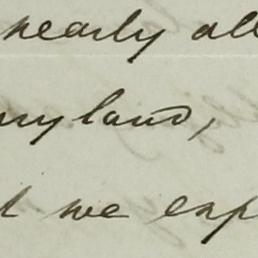 nearly all
my land,
we exp